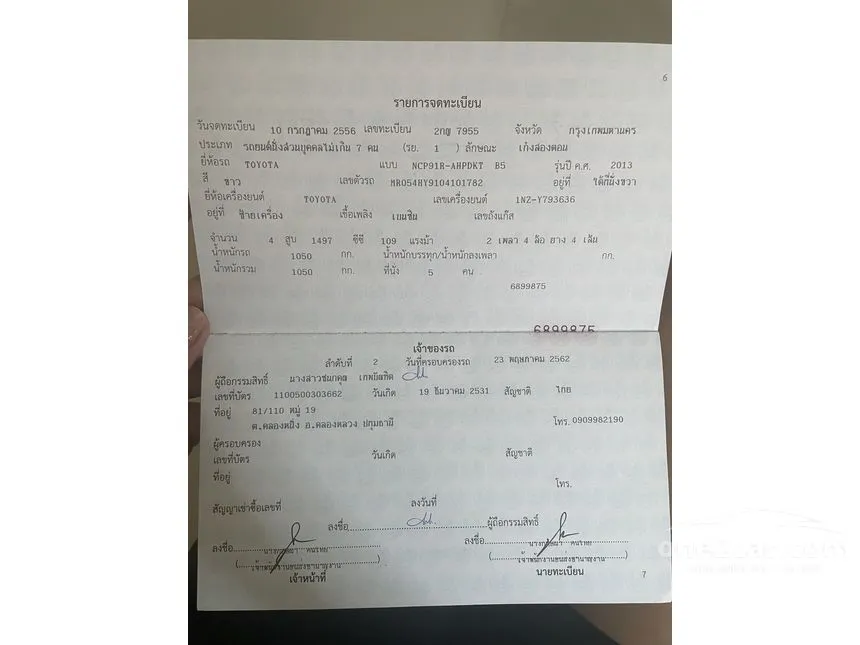 6
รายการจดทะเบียน
วันจดทะเบียน 10 กรกฎาคม 2556 เลขทะเบียน 2กญ 7955 จังหวัด กรุงเทพมหานคร
ประเภท รถยนต์นั่งส่วนบุคคลไม่เกิน 7 คน (รย. 1 ) ลักษณะ เก๋งสองตอน
ยี่ห้อรถ TOYOTA แบบ NCP91R-AHPDKT B5 รุ่นปี ค.ศ. 2013
สี ขาว เลขตัวรถ MR054HY9104101782 อยู่ที่ ใต้ที่นั่งขวา
ยี่ห้อเครื่องยนต์ TOYOTA เลขเครื่องยนต์ 1NZ-Y793636
อยู่ที่ ซ้ายเครื่อง เชื้อเพลิง เบนซิน เลขถังแก๊ส
จำนวน 4 สูบ 1497 ซีซี 109 แรงม้า 2 เพลา 4 ล้อ ยาง 4 เส้น
น้ำหนักรถ 1050 กก. น้ำหนักบรรทุก/น้ำหนักลงเพลา กก.
น้ำหนักรวม 1050 กก. ที่นั่ง 5 คน
6899875
6899875
เจ้าของรถ
ลำดับที่ 2 วันที่ครอบครองรถ 23 พฤษภาคม 2562
ผู้ถือกรรมสิทธิ์ นางสาวชนกคุณ เทพบัณฑิต
เลขที่บัตร 1100500303662 วันเกิด 19 ธันวาคม 2531 สัญชาติ ไทย
ที่อยู่ 81/110 หมู่ 19
ต.คลองหนึ่ง อ.คลองหลวง ปทุมธานี โทร. 0909982190
ผู้ครอบครอง
เลขที่บัตร วันเกิด สัญชาติ
ที่อยู่ โทร.
สัญญาเช่าซื้อเลขที่ ลงวันที่
ลงชื่อ ผู้ถือกรรมสิทธิ์
ลงชื่อ ลงชื่อ
(เจ้าพนักงานขนส่งชำนาญงาน) (เจ้าพนักงานขนส่งชำนาญงาน)
เจ้าหน้าที่ นายทะเบียน
7